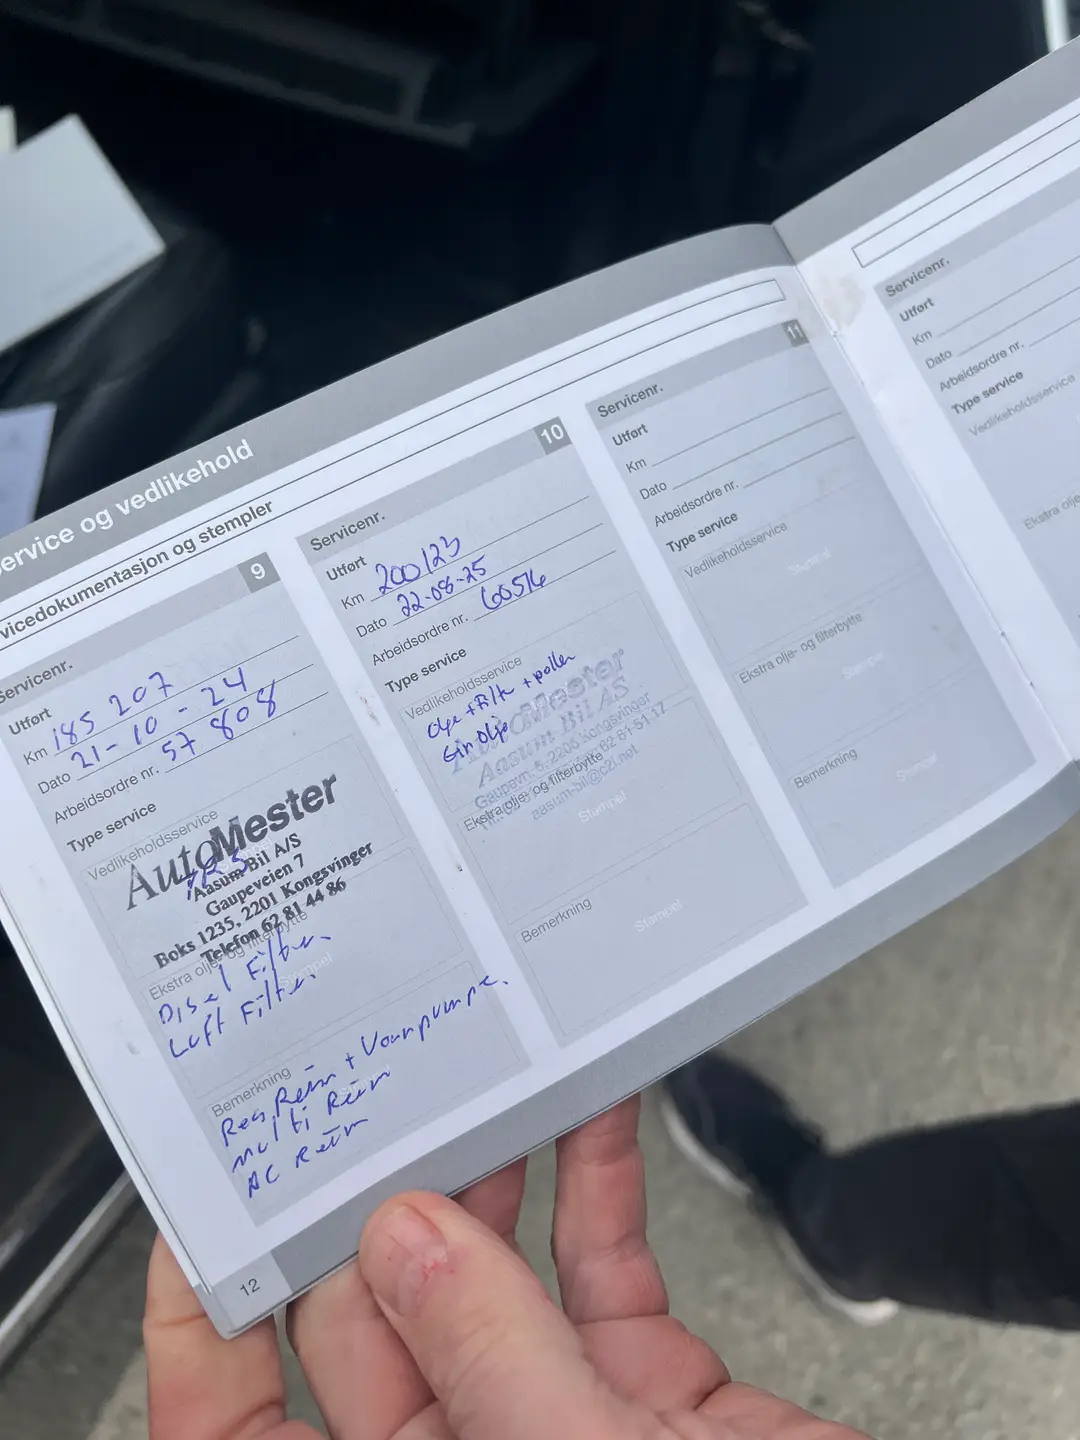 Service og vedlikehold
Servicedokumentasjon og stempler
9
Servicenr.
Utført
Km 185 207
Dato 21-10-24
Arbeidsordre nr. 57 808
Type service
Vedlikeholdsservice
AutoMester
Aasum Bil A/S
Gaupeveien 7
Boks 1235, 2201 Kongsvinger
Telefon 62 81 44 86
Ekstra olje- og filterbytte
Stempel
Disel Filter.
Luft Filter.
Bemerkning
Reg Reim + Vannpumpe.
multi Reim
AC Reim
10
Servicenr.
Utført
Km 200123
Dato 22-08-25
Arbeidsordre nr. 60516
Type service
Vedlikeholdsservice
Olje + Filter + pollen
Gir Olje
AutoMester
Aasum Bil AS
Gaupevn. 5, 2206 Kongsvinger
62 81 51 17
aasum-bil@c2i.net
Ekstra olje- og filterbytte
Stempel
Bemerkning
Stempel
11
Servicenr.
Utført
Km
Dato
Arbeidsordre nr.
Type service
Vedlikeholdsservice
Stempel
Ekstra olje- og filterbytte
Stempel
Bemerkning
Stempel
12
Servicenr.
Utført
Km
Dato
Arbeidsordre nr.
Type service
Vedlikeholdsservice
Ekstra olje